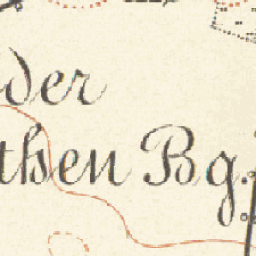 der
then Bg.